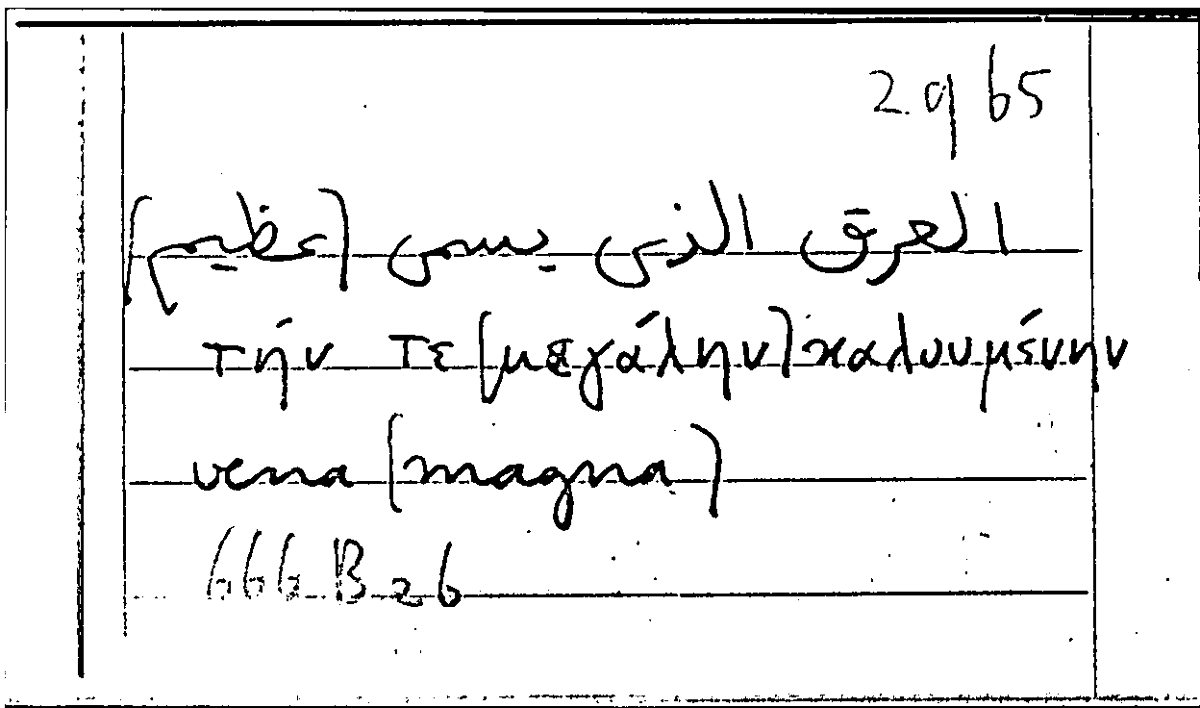 2.9 65
العرق الذى يسمى (عظيم)
τήν τε (μεγάλην) καλουμένην
vena (magna)
666 B 26